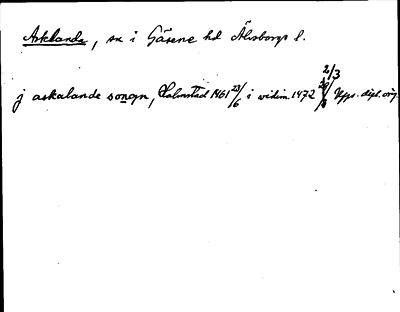 Asklanda, sn i Gäsene hd Älvsborgs l.
j askalande songn, Halmstad 1461 23/6 i vidim. 1472 2/3 Upps. dipl. orig